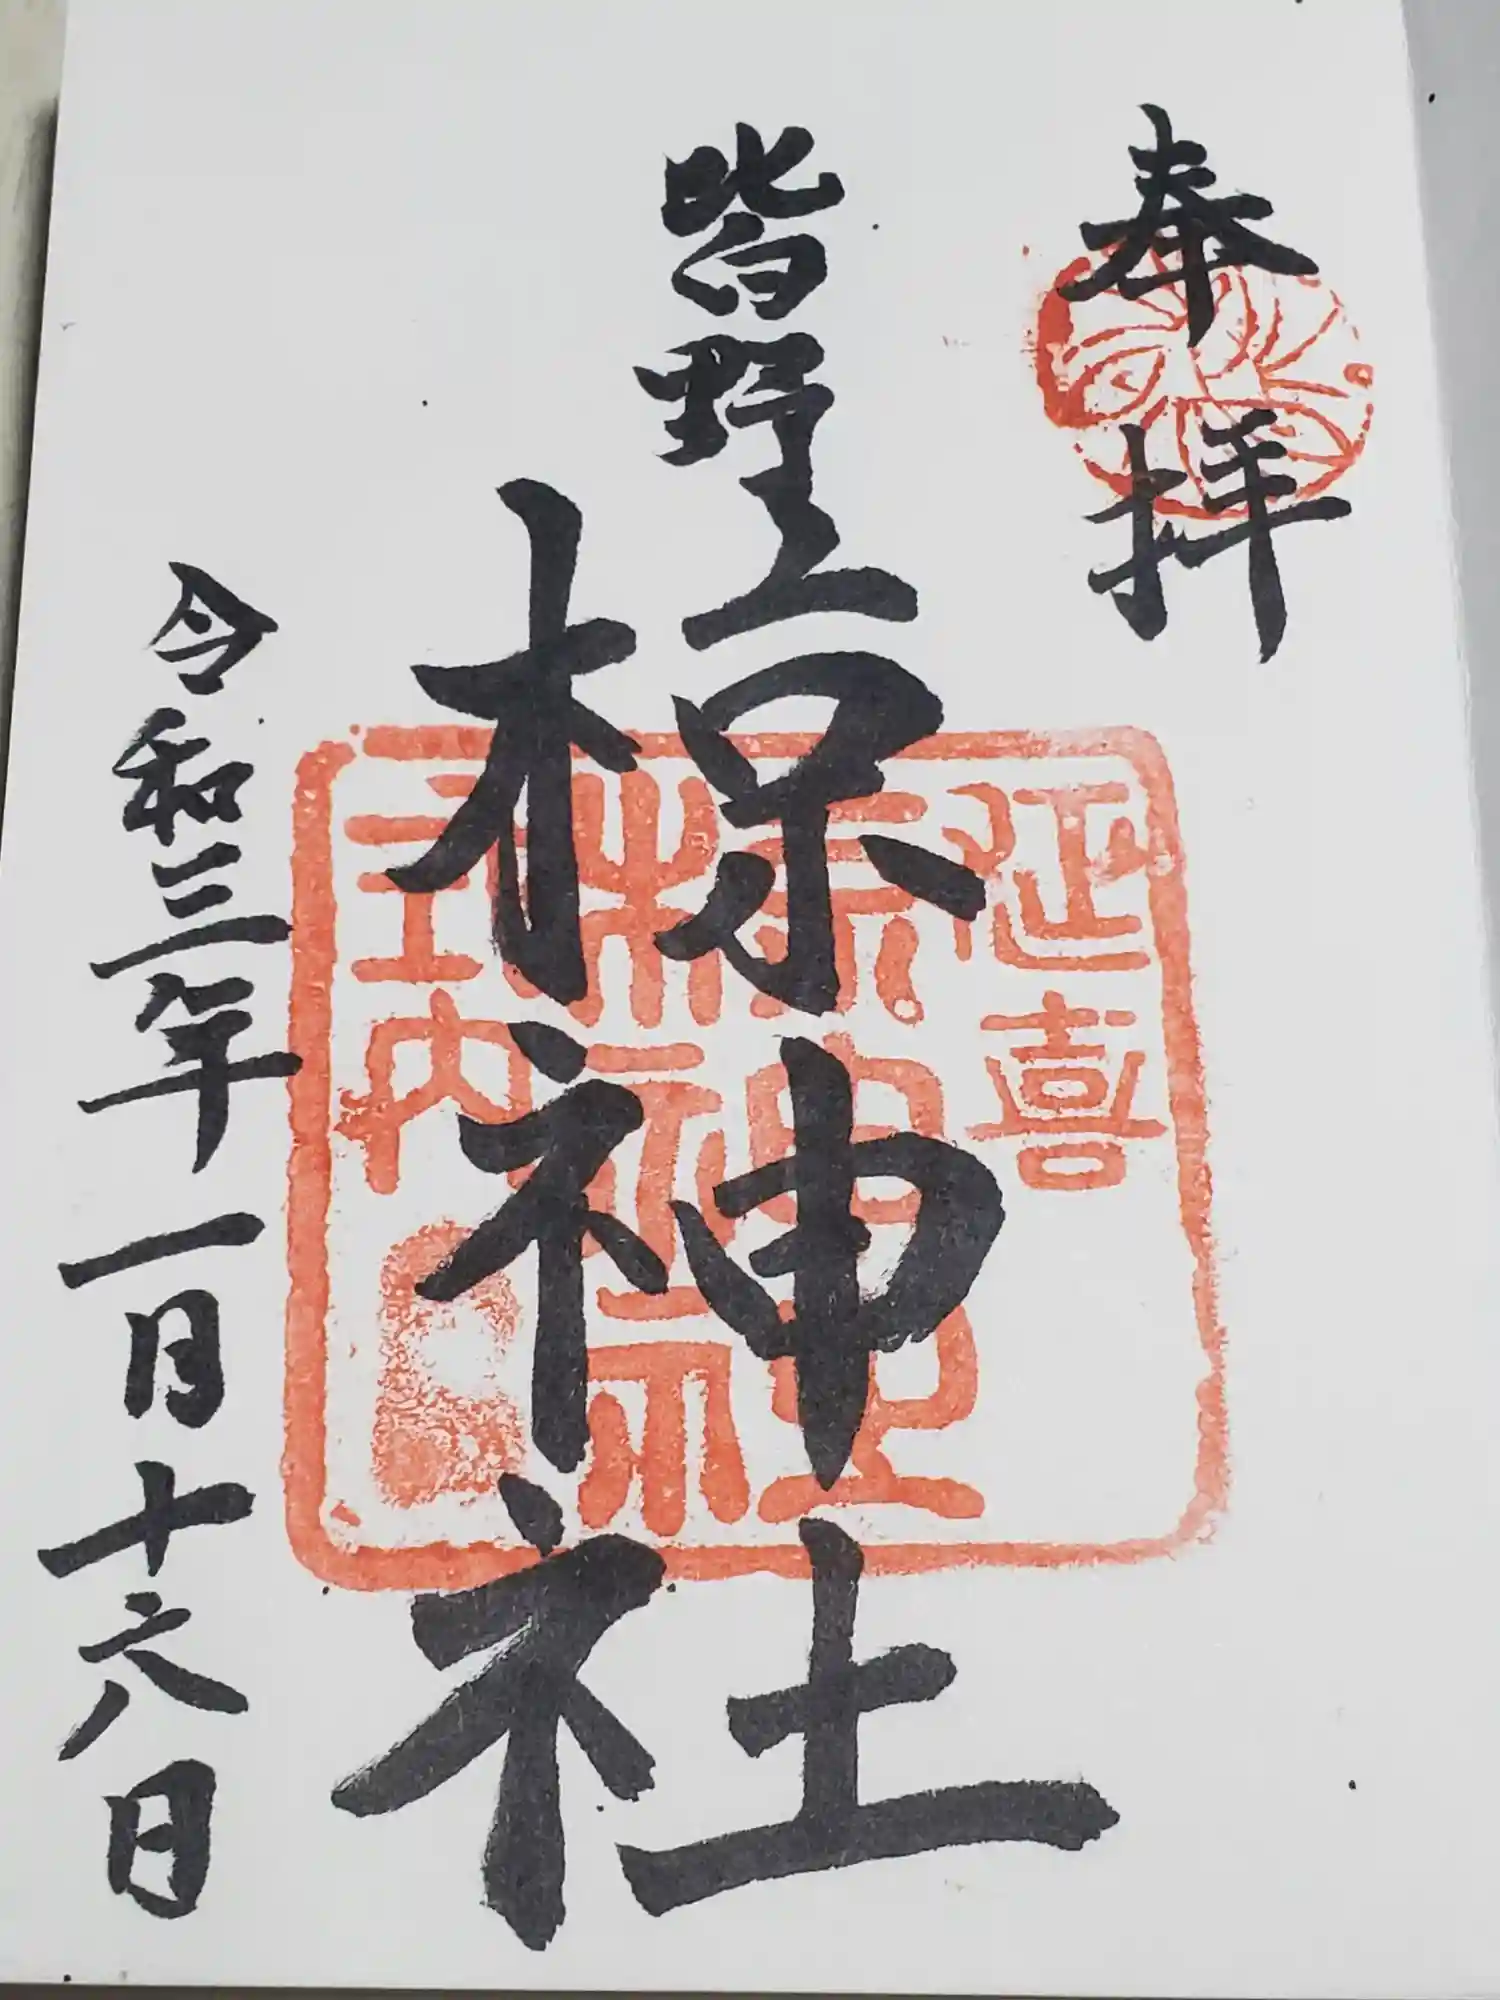 奉拝
皆野
椋神社
令和三年一月十六日
延喜
椋神社
式内